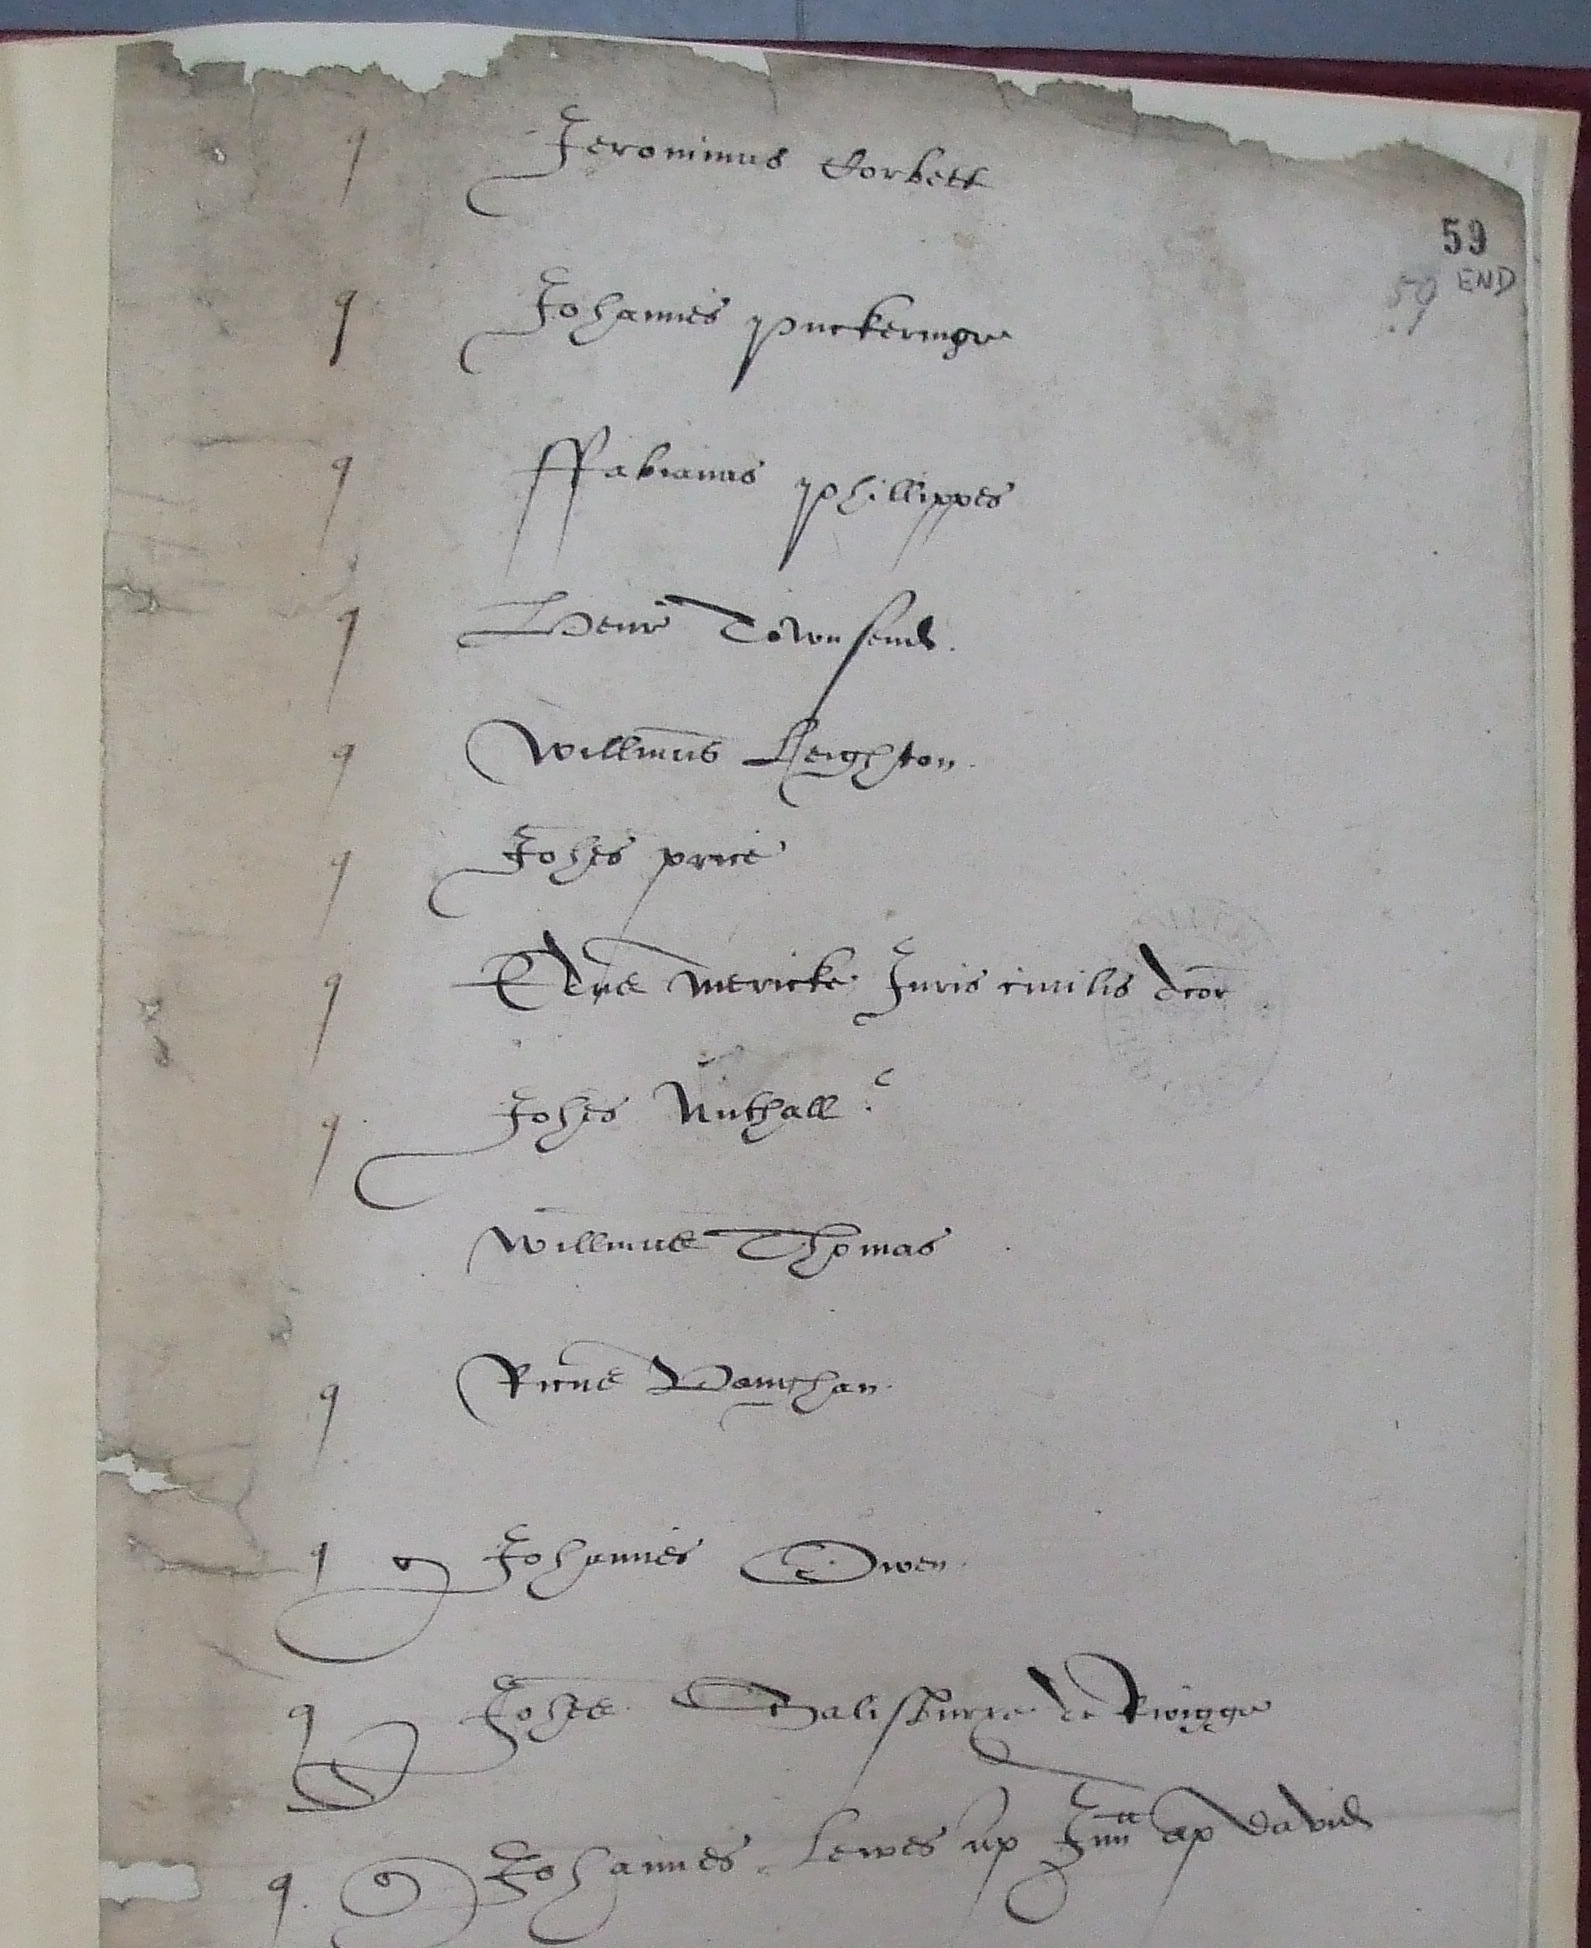 q Jeronimus Corbett
59
59 END
q Johannes Puckeringe
q ffabianus Phillippes
q Henr Townsend.
q Willmus Leighton.
q Johes price
q Edrus Mericke Juris civilis dcor
q Johes Nuthall
Willmus Thomas
q Ricus Vaughan.
q Johannes Owen.
q Johes Salisburye de Rwigge
q. Johannes Lewes ap ap david